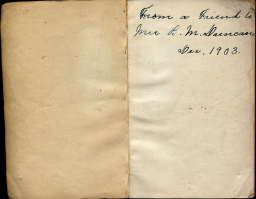 From a Friend to
Mrs R. M. Duncan
Dec. 1903.